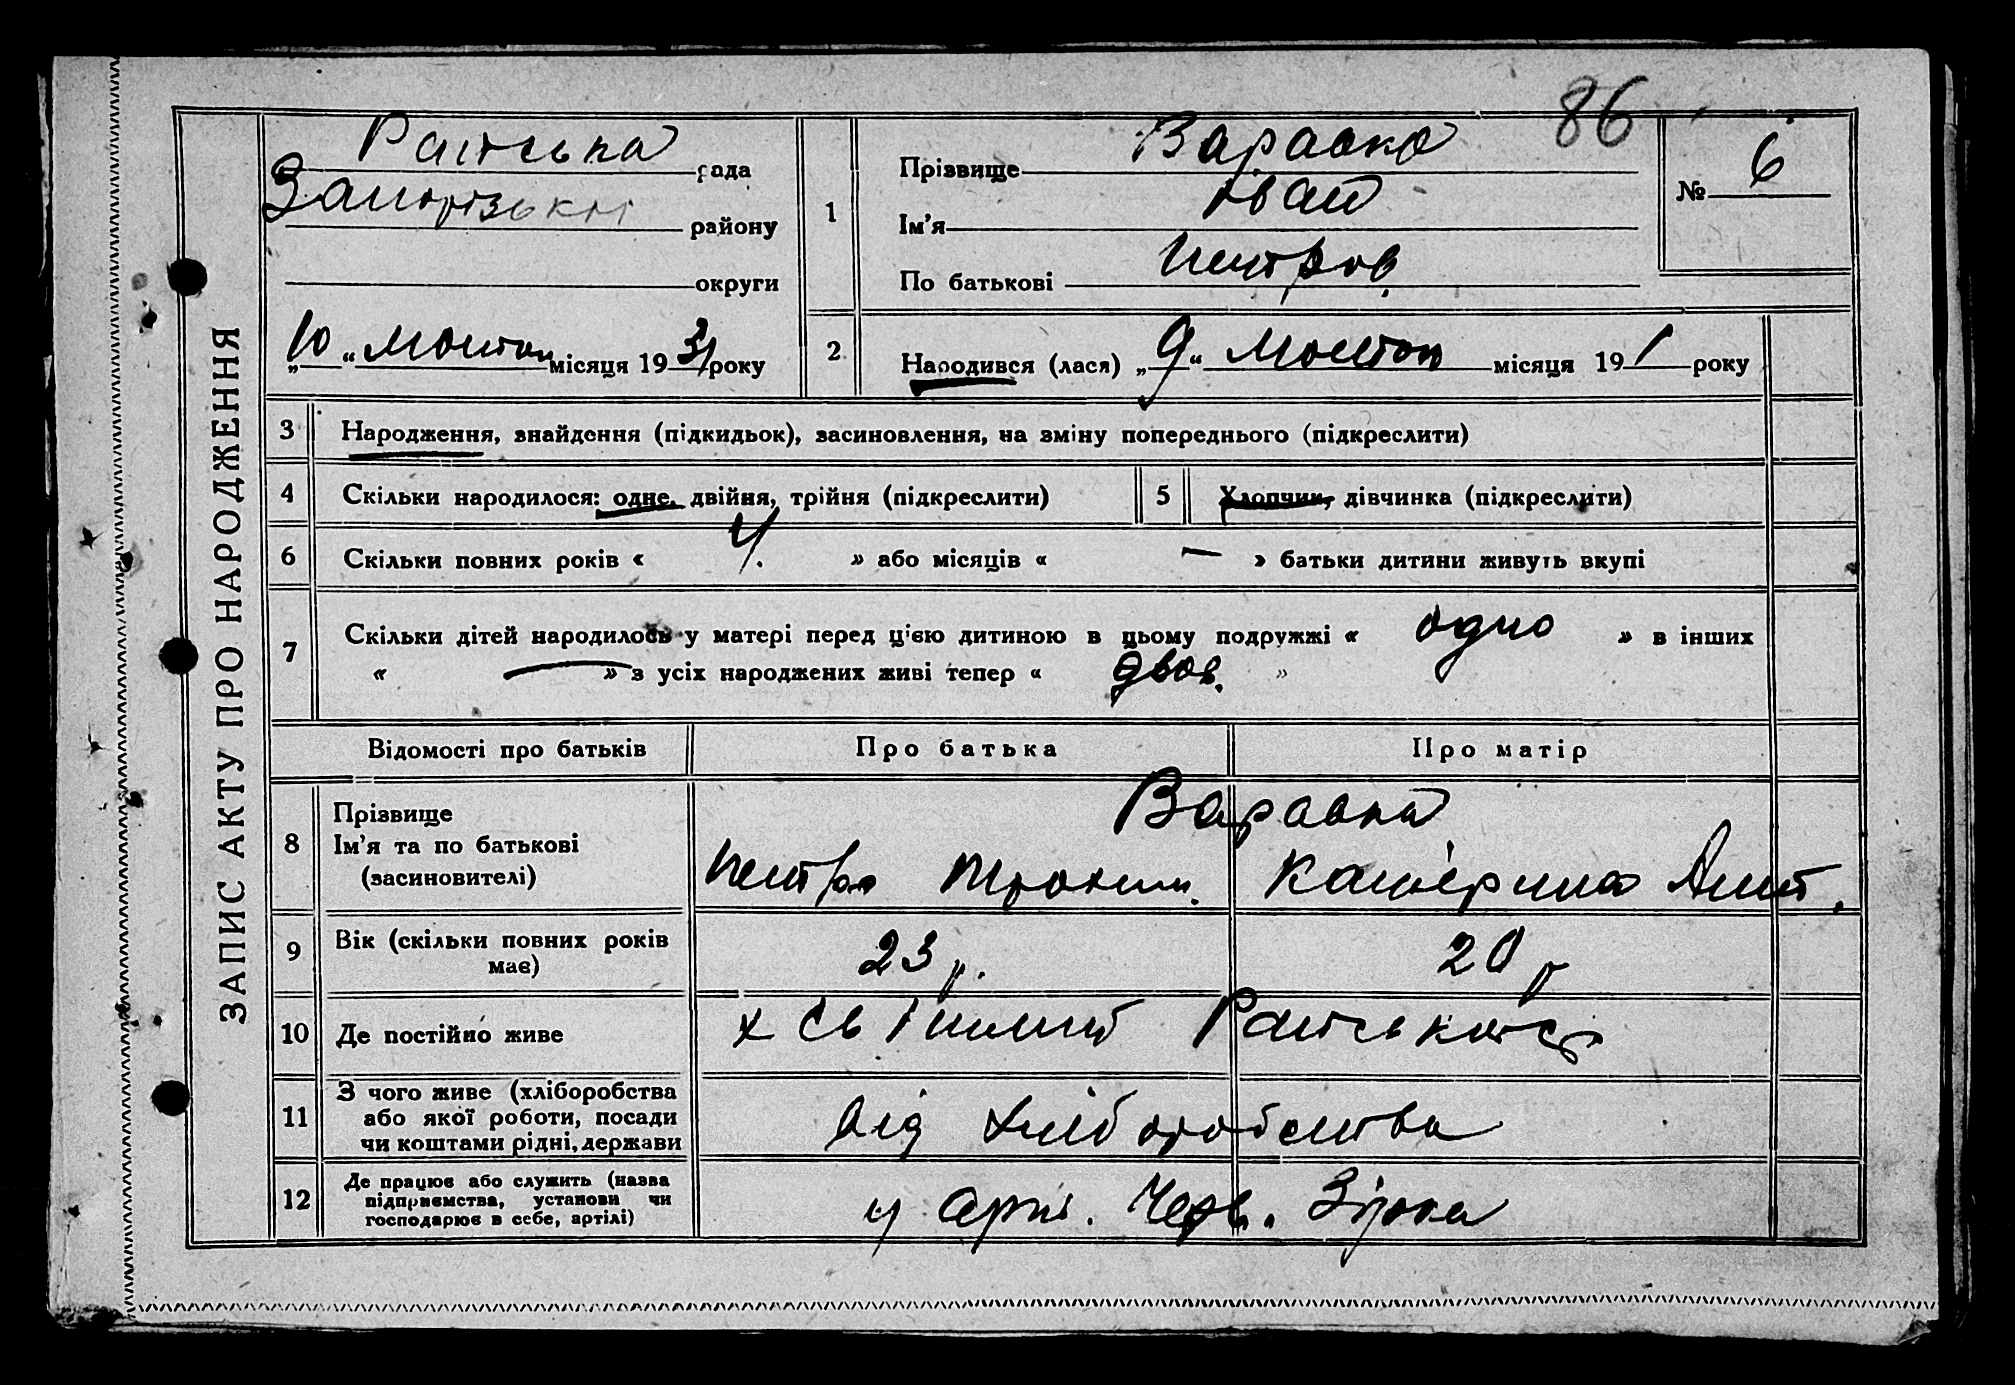 86
ЗАПИС АКТУ ПРО НАРОДЖЕННЯ
рада
району
округи
„10“ місяця 1931 року
1
Прізвище Варавка
Ім'я Іван
По батькові Петров
№ 6
2
Народився (лася) „9“ місяця 19 1 року
3 Народження, знайдення (підкидьок), засиновлення, на зміну попереднього (підкреслити)
4 Скільки народилося: одне, двійня, трійня (підкреслити)
5 Хлопчик, дівчинка (підкреслити)
6 Скільки повних років « 4. » або місяців « — » батьки дитини живуть вкупі
7 Скільки дітей народилось у матері перед цією дитиною в цьому подружжі « одно » в інших
« — » з усіх народжених живі тепер « двоє. »
Відомості про батьків Про батька Про матір
8 Прізвище
Ім'я та по батькові
(засиновителі)
Варавка
Петро Трохим. Катерина Ант.
9 Вік (скільки повних років
має)
23 р. 20 р
10 Де постійно живе
11 З чого живе (хліборобства
або якої роботи, посади
чи коштами рідні, держави
від хліборобства
12 Де працює або служить (назва
підприємства, установи чи
господарює в себе, артілі)
у арт. Черв. Зірка